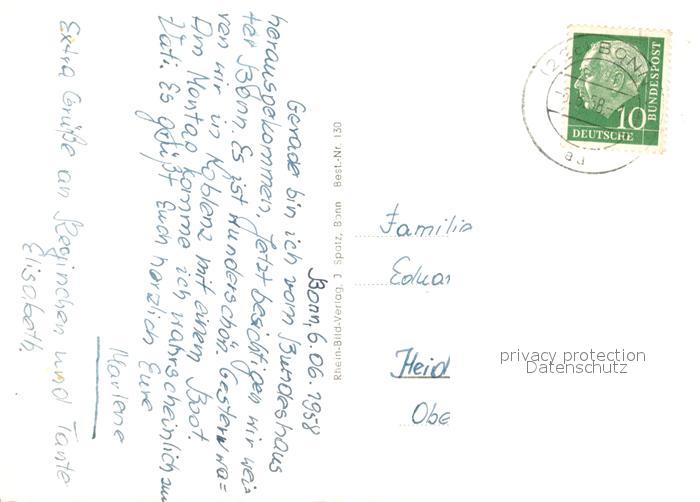 Bonn, 6.06.1958
Gerade bin ich vom Bundeshaus
herausgekommen. Jetzt besichtigen wir wei=
ter Bonn. Es ist wunderschön. Gestern wa=
ren wir in Koblenz mit einem Boot.
Am Montag komme ich wahrscheinlich zu
Vati. Es grüßt Euch herzlich Eure
Marlene
Extra Grüße an Reginchen und Tante
Elisabeth.
Rhein-Bild-Verlag, J. Spatz, Bonn Best.-Nr. 130
(22c) BONN
58
ad
10
DEUTSCHE
BUNDESPOST
Familie
Eduar
Heid
Obe
privacy protection
Datenschutz